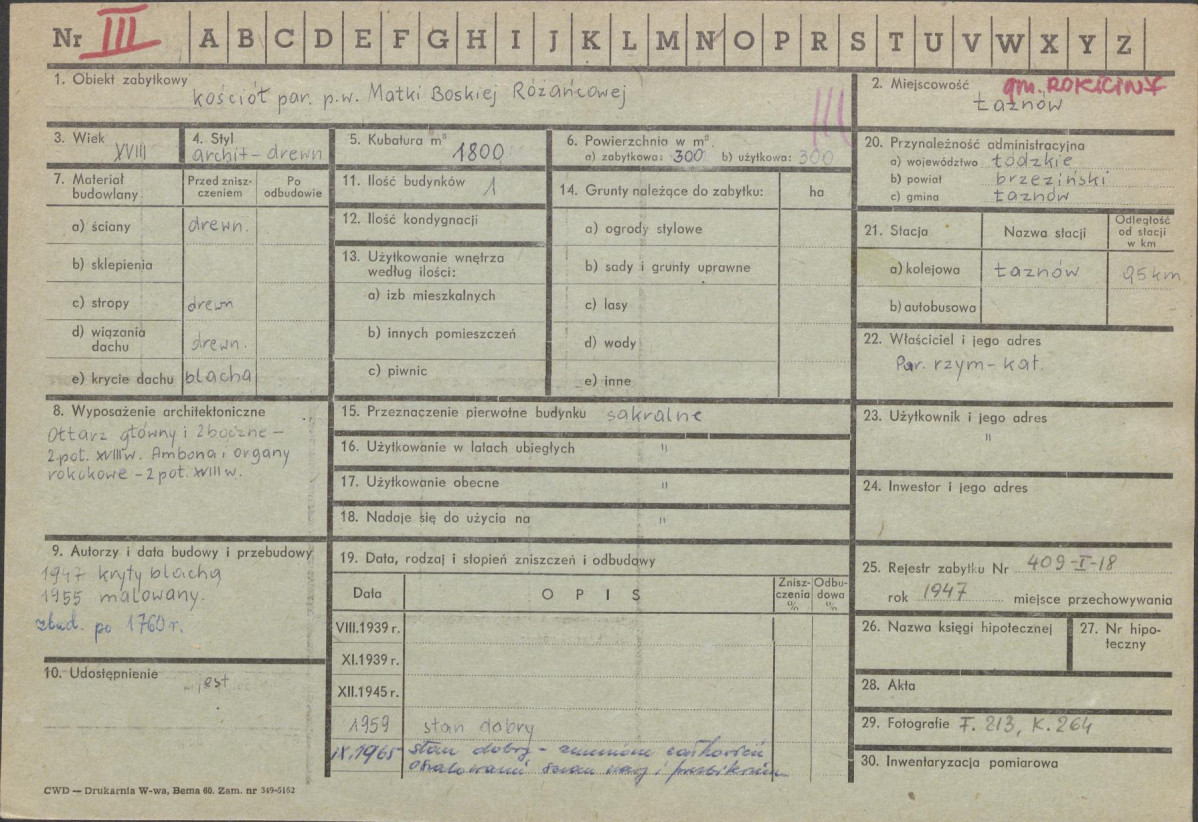 Nr III A B C D E F G H I J K L M N O P R S T U V W X Y Z
1. Obiekt zabytkowy
kościół par. p.w. Matki Boskiej Różańcowej
2. Miejscowość gm. ROKICINY
Łaznów
3. Wiek
XVIII
4. Styl
archit-drewn
5. Kubatura m³
1800
6. Powierzchnia w m²
a) zabytkowa: 300 b) użytkowa: 300
III
7. Materiał budowlany
Przed zniszczeniem
Po odbudowie
a) ściany drewn.
b) sklepienia
c) stropy drewn
d) wiązania dachu drewn.
e) krycie dachu blacha
8. Wyposażenie architektoniczne
Ołtarz główny i 2 boczne –
2 poł. XVIII w. Ambona i organy
rokokowe – 2 poł. XVIII w.
9. Autorzy i data budowy i przebudowy
1947 kryty blachą
1955 malowany.
zbud. po 1760 r.
10. Udostępnienie
jest
11. Ilość budynków 1
12. Ilość kondygnacji
13. Użytkowanie wnętrza
według ilości:
a) izb mieszkalnych
b) innych pomieszczeń
c) piwnic
14. Grunty należące do zabytku: ha
a) ogrody stylowe
b) sady i grunty uprawne
c) lasy
d) wody
e) inne
15. Przeznaczenie pierwotne budynku sakralne
16. Użytkowanie w latach ubiegłych "
17. Użytkowanie obecne "
18. Nadaje się do użycia na "
19. Data, rodzaj i stopień zniszczeń i odbudowy
Data OPIS Zniszczenia % Odbudowa %
VIII.1939 r.
XI.1939 r.
XII.1945 r.
1959 stan dobry
IX.1965 stan dobry –
20. Przynależność administracyjna
a) województwo łódzkie
b) powiat brzeziński
c) gmina Łaznów
21. Stacja Nazwa stacji Odległość od stacji w km
a) kolejowa Łaznów
b) autobusowa
22. Właściciel i jego adres
Par. rzym-kat.
23. Użytkownik i jego adres
"
24. Inwestor i jego adres
25. Rejestr zabytku Nr 409-I-18
rok 1947 miejsce przechowywania
26. Nazwa księgi hipotecznej
27. Nr hipoteczny
28. Akta
29. Fotografie F. 213, K. 264
30. Inwentaryzacja pomiarowa
CWD — Drukarnia W-wa, Bema 60. Zam. nr 349-5162